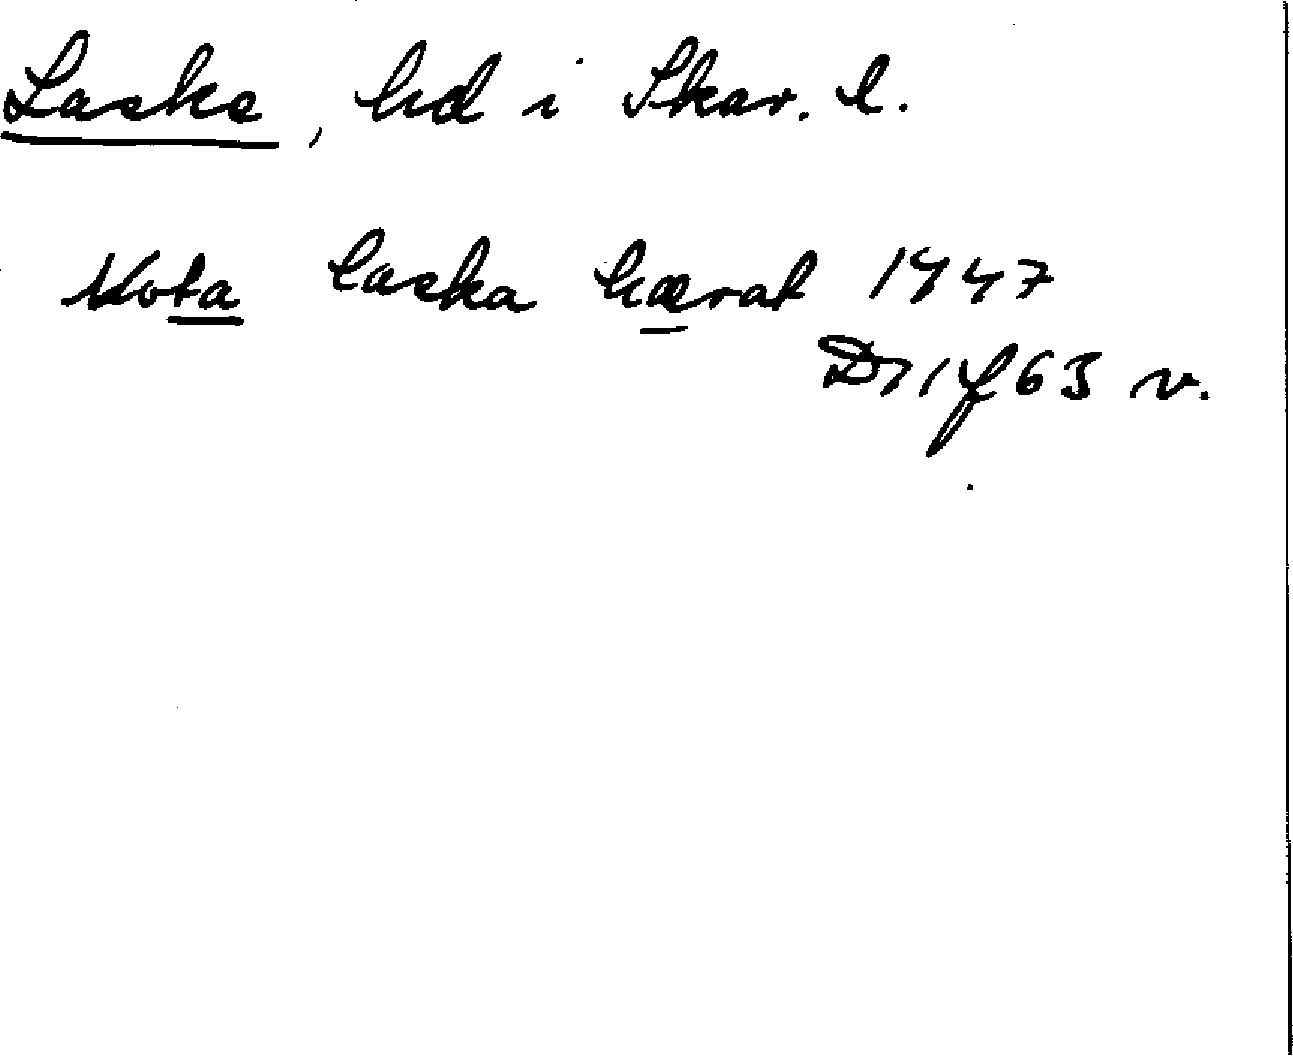 Laske, hd i Skar. l.
Nota laska hærat 1447
D 11 f 63 v.